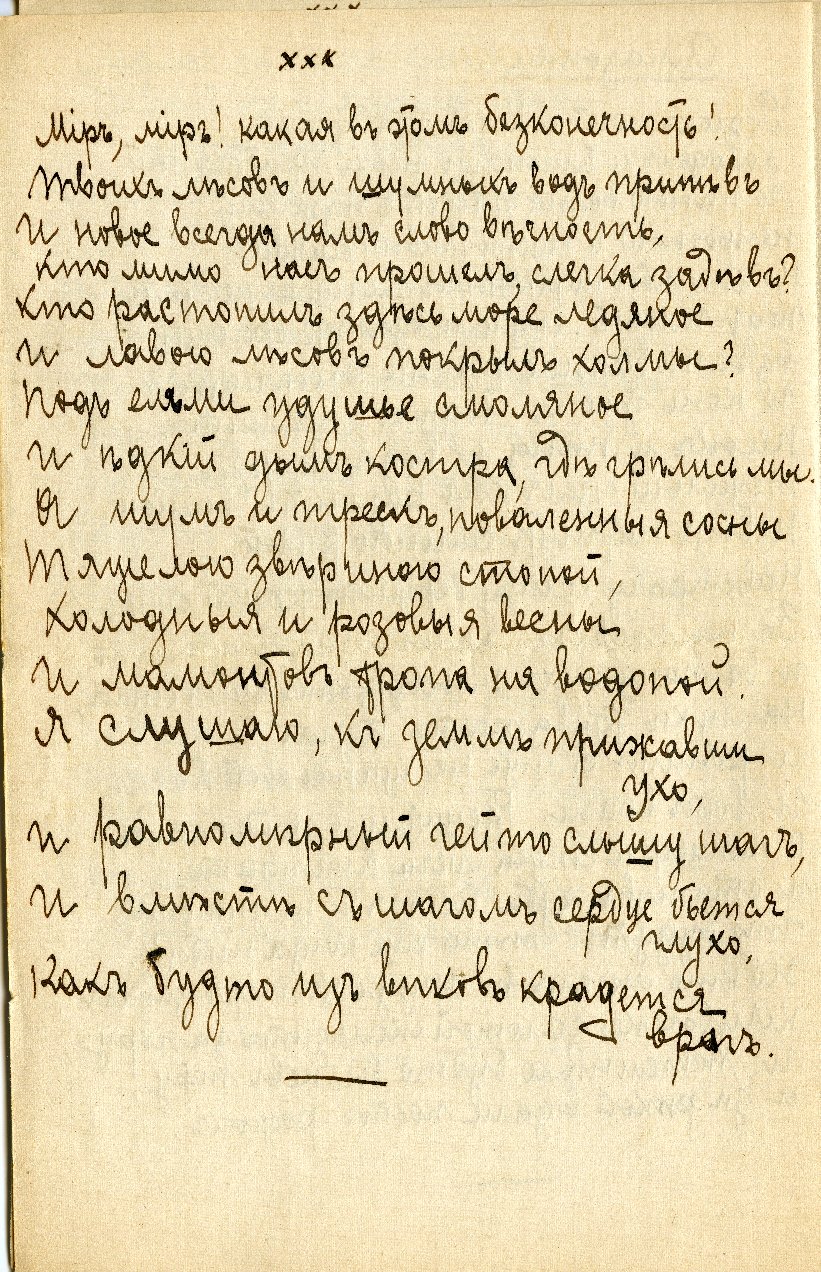 ххх
Міръ, міръ! какая въ этомъ безконечность!
Твоихъ лѣсовъ и шумныхъ водъ припѣвъ
И новое всегда намъ слово вѣчность,
Кто мимо насъ прошелъ, слегка задѣвъ?
Кто растопилъ здѣсь море ледяное
И лавою лѣсовъ покрылъ холмы?
Подъ елями удушье смоляное
И ѣдкій дымъ костра, гдѣ грѣлись мы.
А шумъ и трескъ, поваленныя сосны
Тяжелою звѣриною стопой,
Холодныя и розовыя весны
И мамонтовъ тропа на водопой.
Я слушаю, къ землѣ прижавши
ухо,
И равномѣрный чей то слышу шагъ,
И вмѣстѣ съ шагомъ сердце бьется
глухо,
Какъ будто изъ вѣковъ крадется
врагъ.